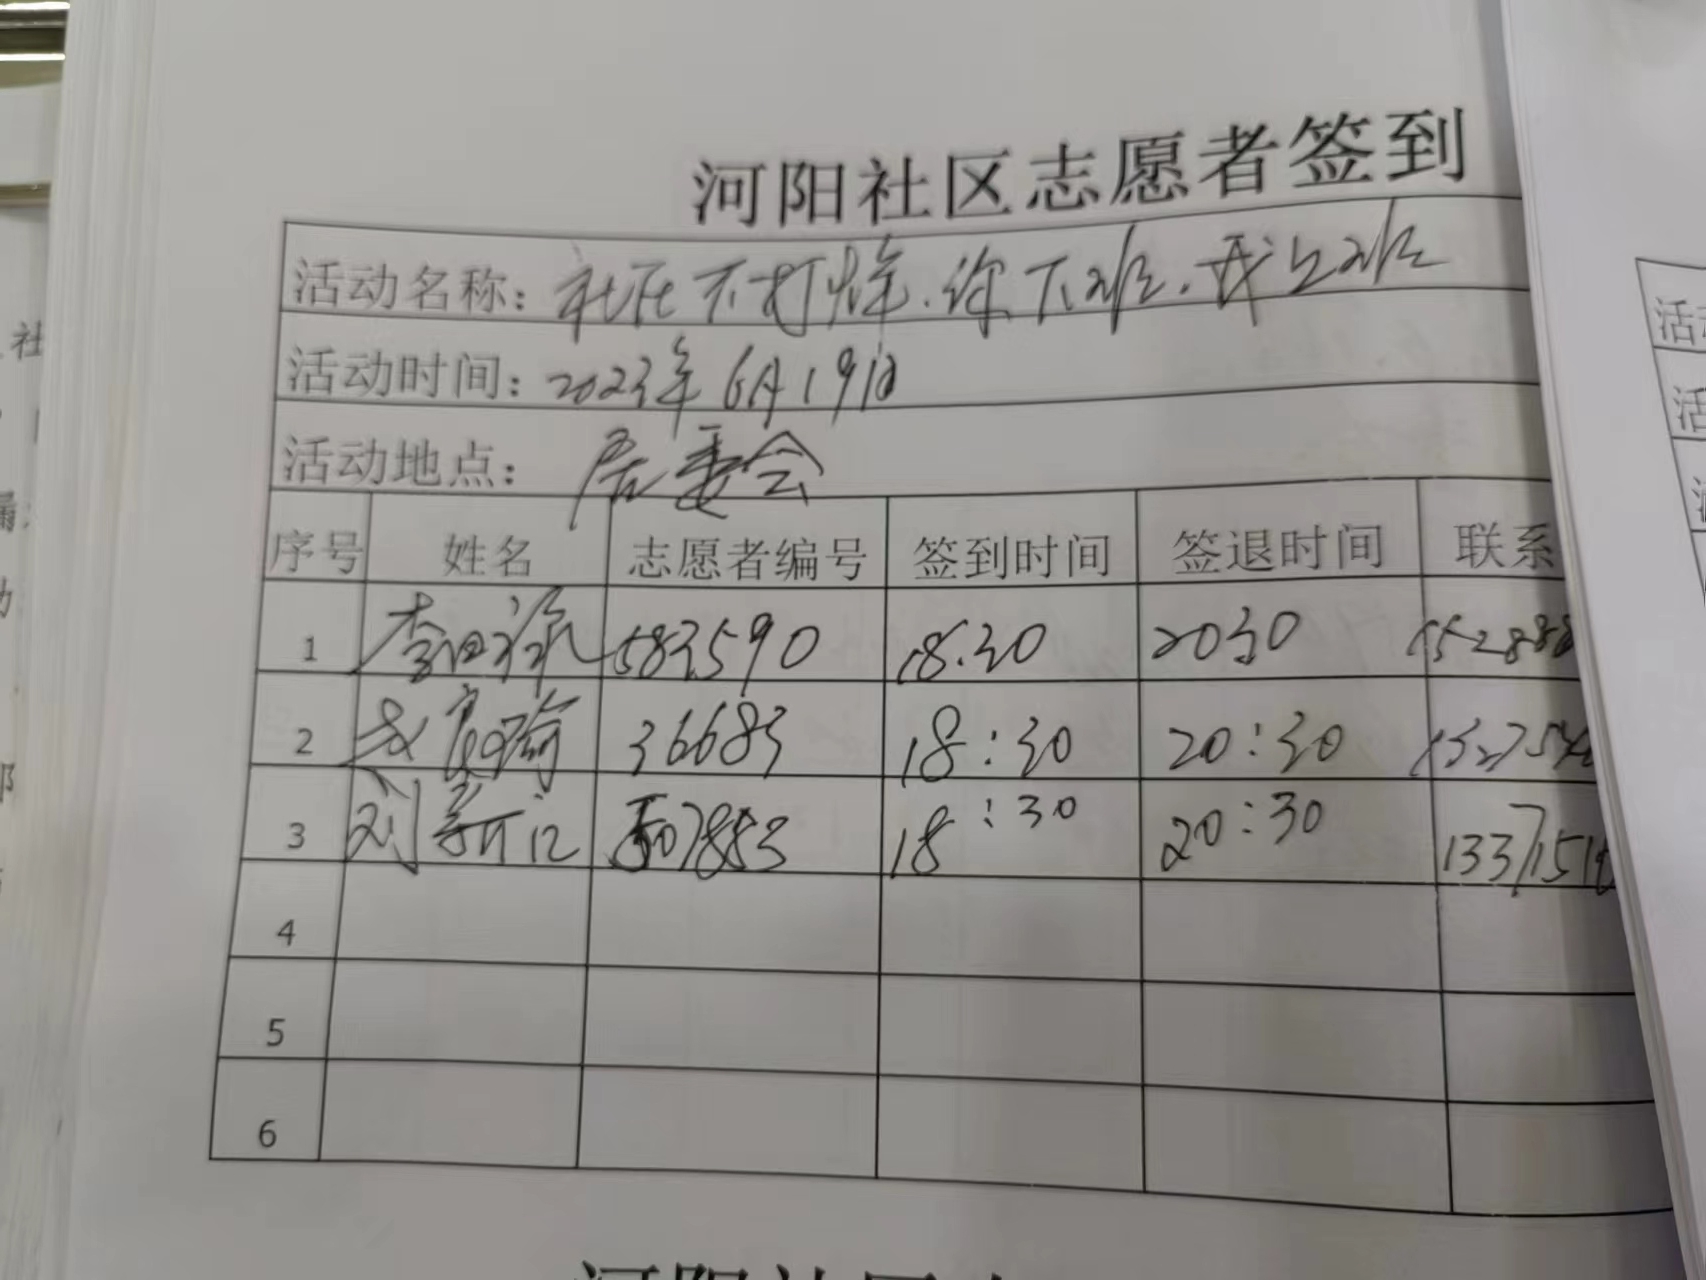 河阳社区志愿者签到
活动名称：社区不打烊.你下班.我上班
活动时间：2023年6月19日
活动地点：居委会
序号 姓名 志愿者编号 签到时间 签退时间 联系
1 583590 18:30 2030 152888
2 36683 18:30 20:30 132754
3 刘新江 07853 18:30 20:30 1337151
4
5
6
社
活动
活